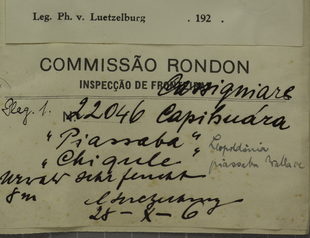 Leg. Ph. v. Luetzelburg . 192 .
COMMISSÃO RONDON
INSPECÇÃO DE FRO
Cassiquiare
Nº 22046 Capibuára
"Piassaba"
"Chiqule"
Leopoldinia
piassaba Wallace
Urwald sehr feucht
8 m
Luetzelburg
28-X-6